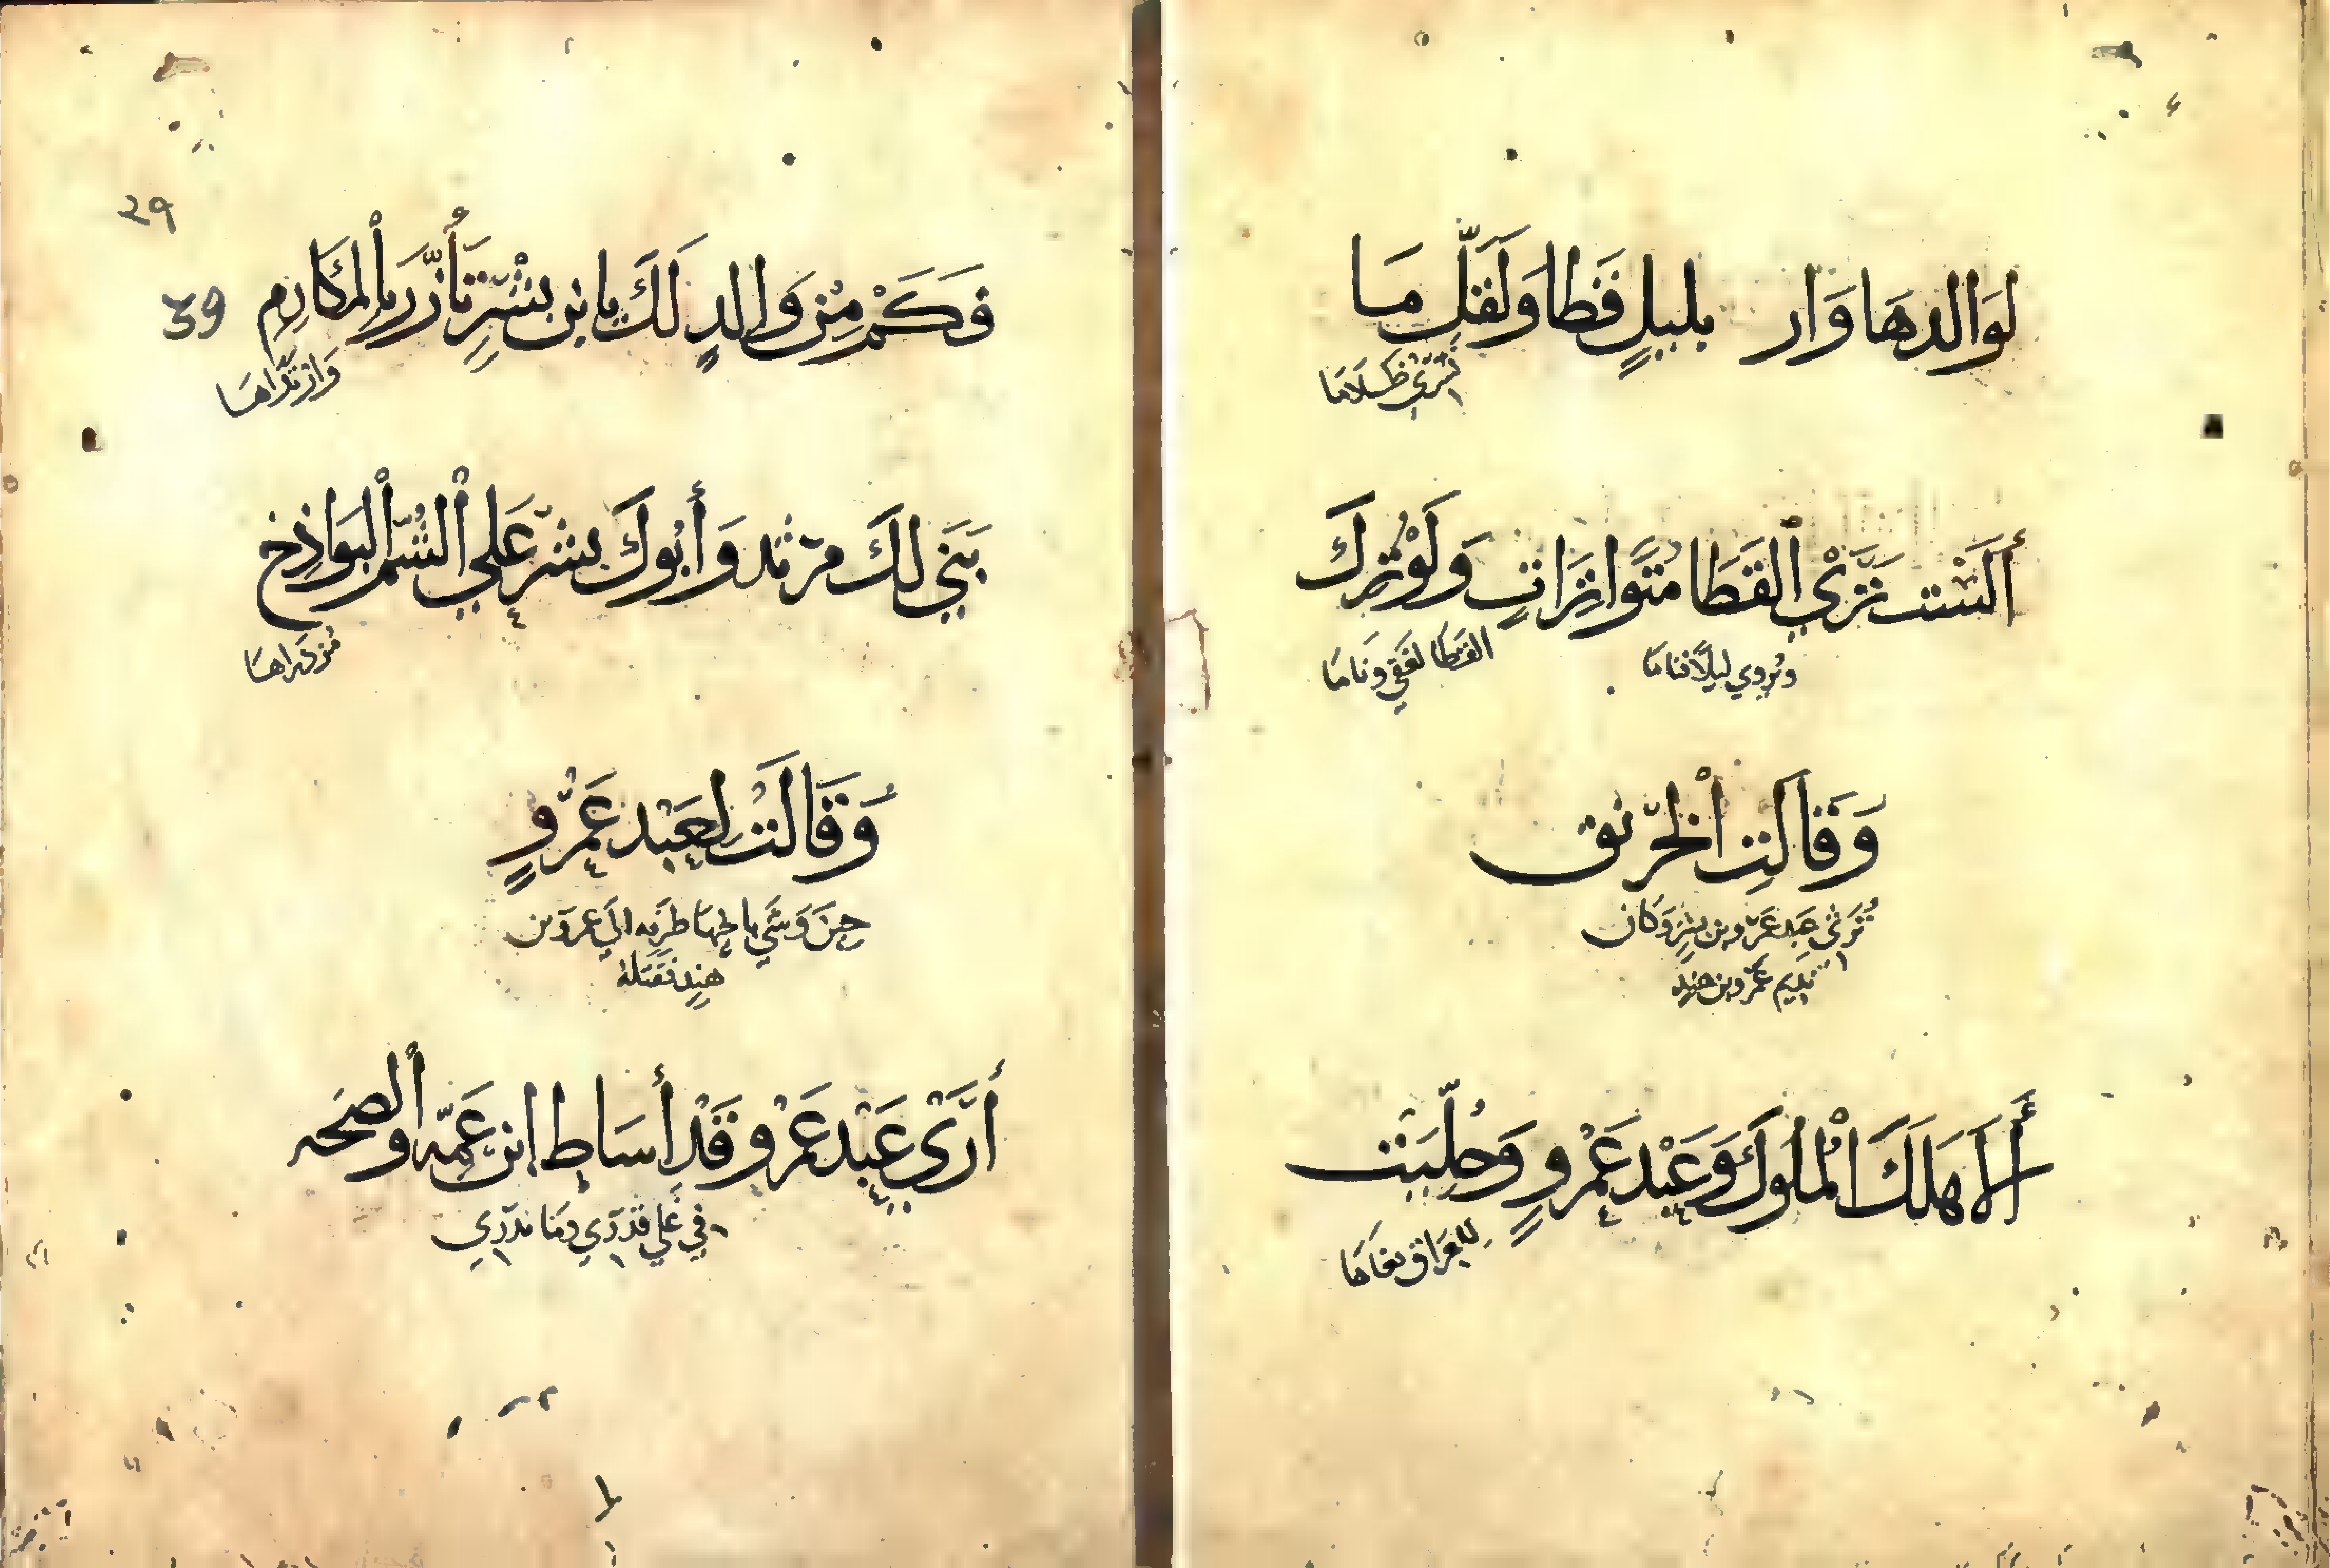 لِوَالدهَا وَار بليلٍ قَطا وَلَقلّ مَا
تَسْري ظَلامَا
أَلَسْتَ تَرَيْ الْقَطَا مُتَواتِرَاتٍ وَلَوْ تُركَ
وتُروي ليلًا تنامَا
القَطَا لغَفي وَنَامَا
وَقَالَتِ الْخرّنق
تَرثي عَبد عَمرو بن بشرٍ وَكان
نديم عَمرو بن هند
أَلَا هَلَكَ الْمُلُوكُ وَعَبْد عَمْروٍ وَخُلِّيَت
لِلعِرَاق بغَاهَا
٣٩
39
فَكَمْ مِنْ وَالدٍ لَكَ يا بن بشْرٍ تَأزَّرَ بالْمكَارِم
وَارْتَدَاهَا
بَنَي لكَ مرثد وَأَبُوكَ بشر عَلي الْشُم الْبَوَاذِخ
مُن ذرَاهَا
وَقَالَتْ لعَبْد عَمْروٍ
حينَ وَشَي باخيهَا طرَفه الي عمرو بن
هندٍ فقتَلهُ
أَرَيْ عَبْد عَمْرو قَدْ أَسَاط ابن عَمِّه أوانضحه
في غَلي قدْرٍ وَمَا ندْري